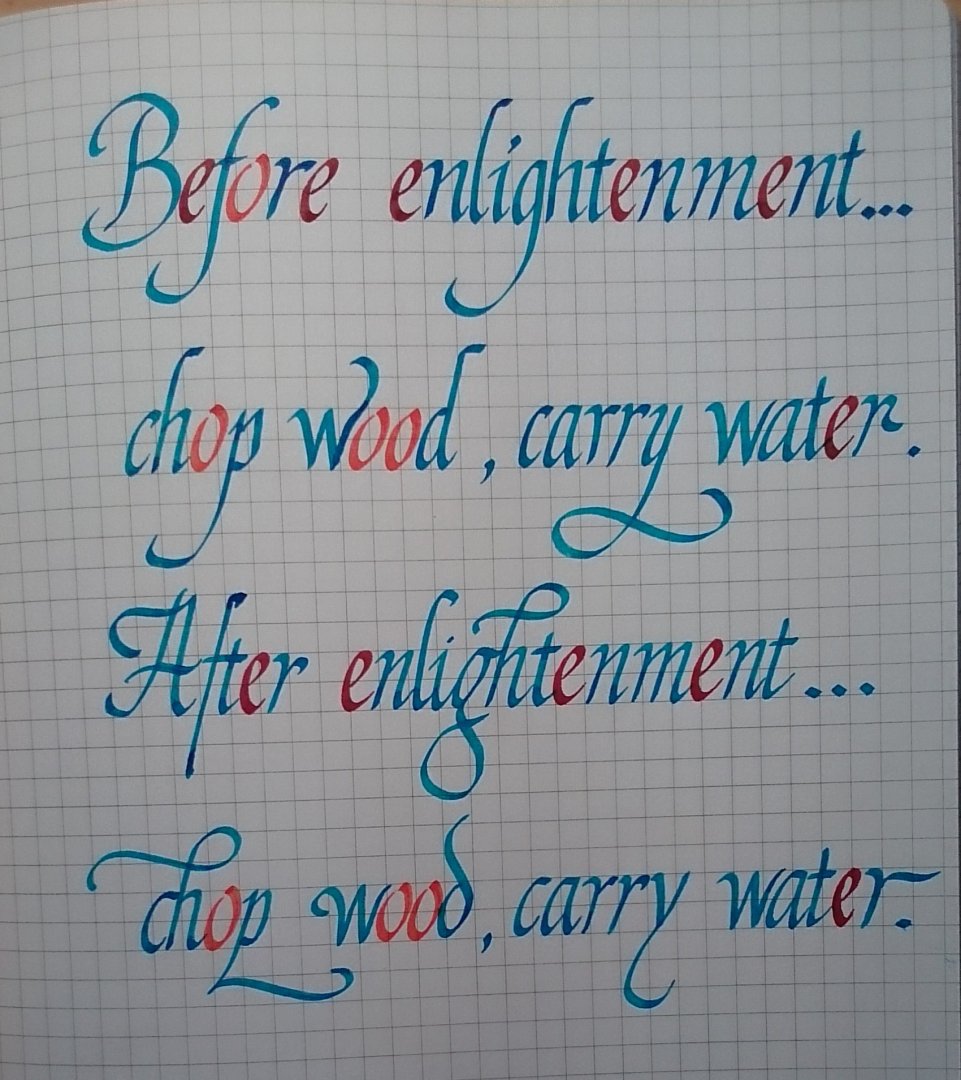 Before enlightenment...
chop wood, carry water.
After enlightenment...
chop wood, carry water.